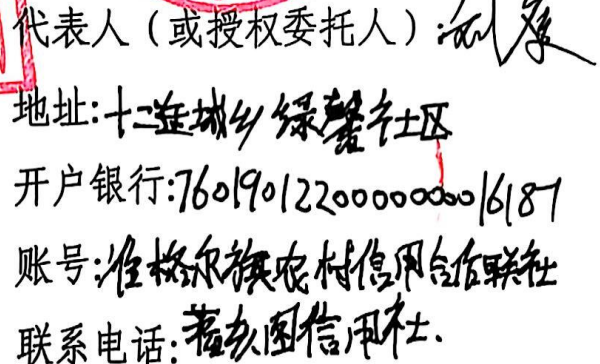 代表人（或授权委托人）:
地址:十二连城乡绿馨社区
开户银行:7601901220000000016187
账号:准格尔旗农村信用合作联社
联系电话:蓿亥图信用社.